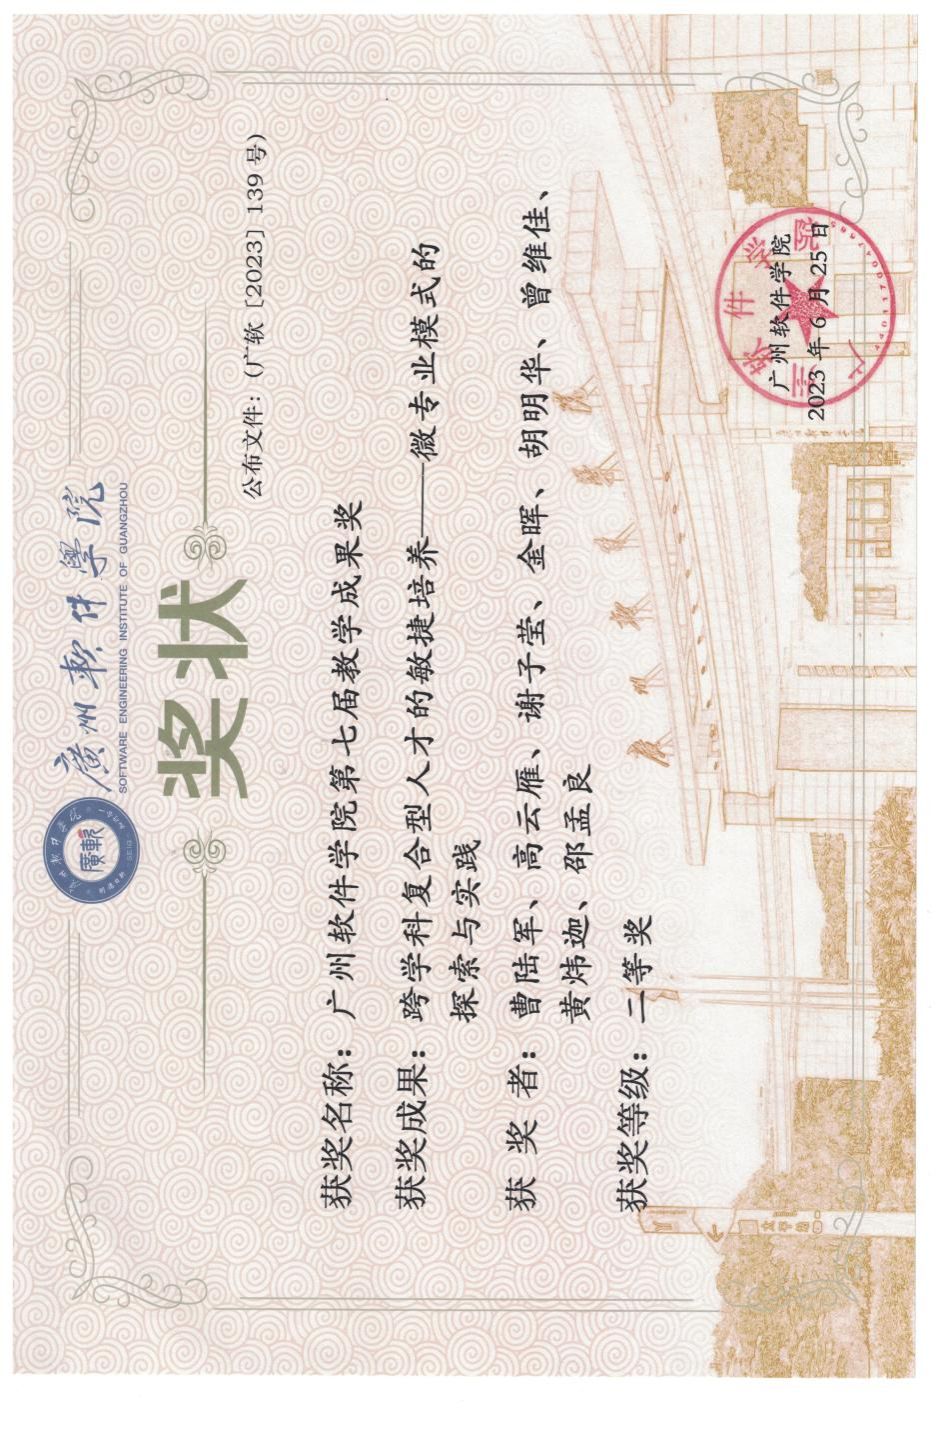 廣州軟件學院
SOFTWARE ENGINEERING INSTITUTE OF GUANGZHOU
奖状
公布文件：（广软［2023］139 号）
获奖名称：广州软件学院第七届教学成果奖
获奖成果：跨学科复合型人才的敏捷培养——微专业模式的
探索与实践
获 奖 者：曹陆军、高云雁、谢子莹、金晖、胡明华、曾维佳、
黄炜迦、邵孟良
获奖等级：二等奖
广州软件学院
2023 年 6 月 25 日